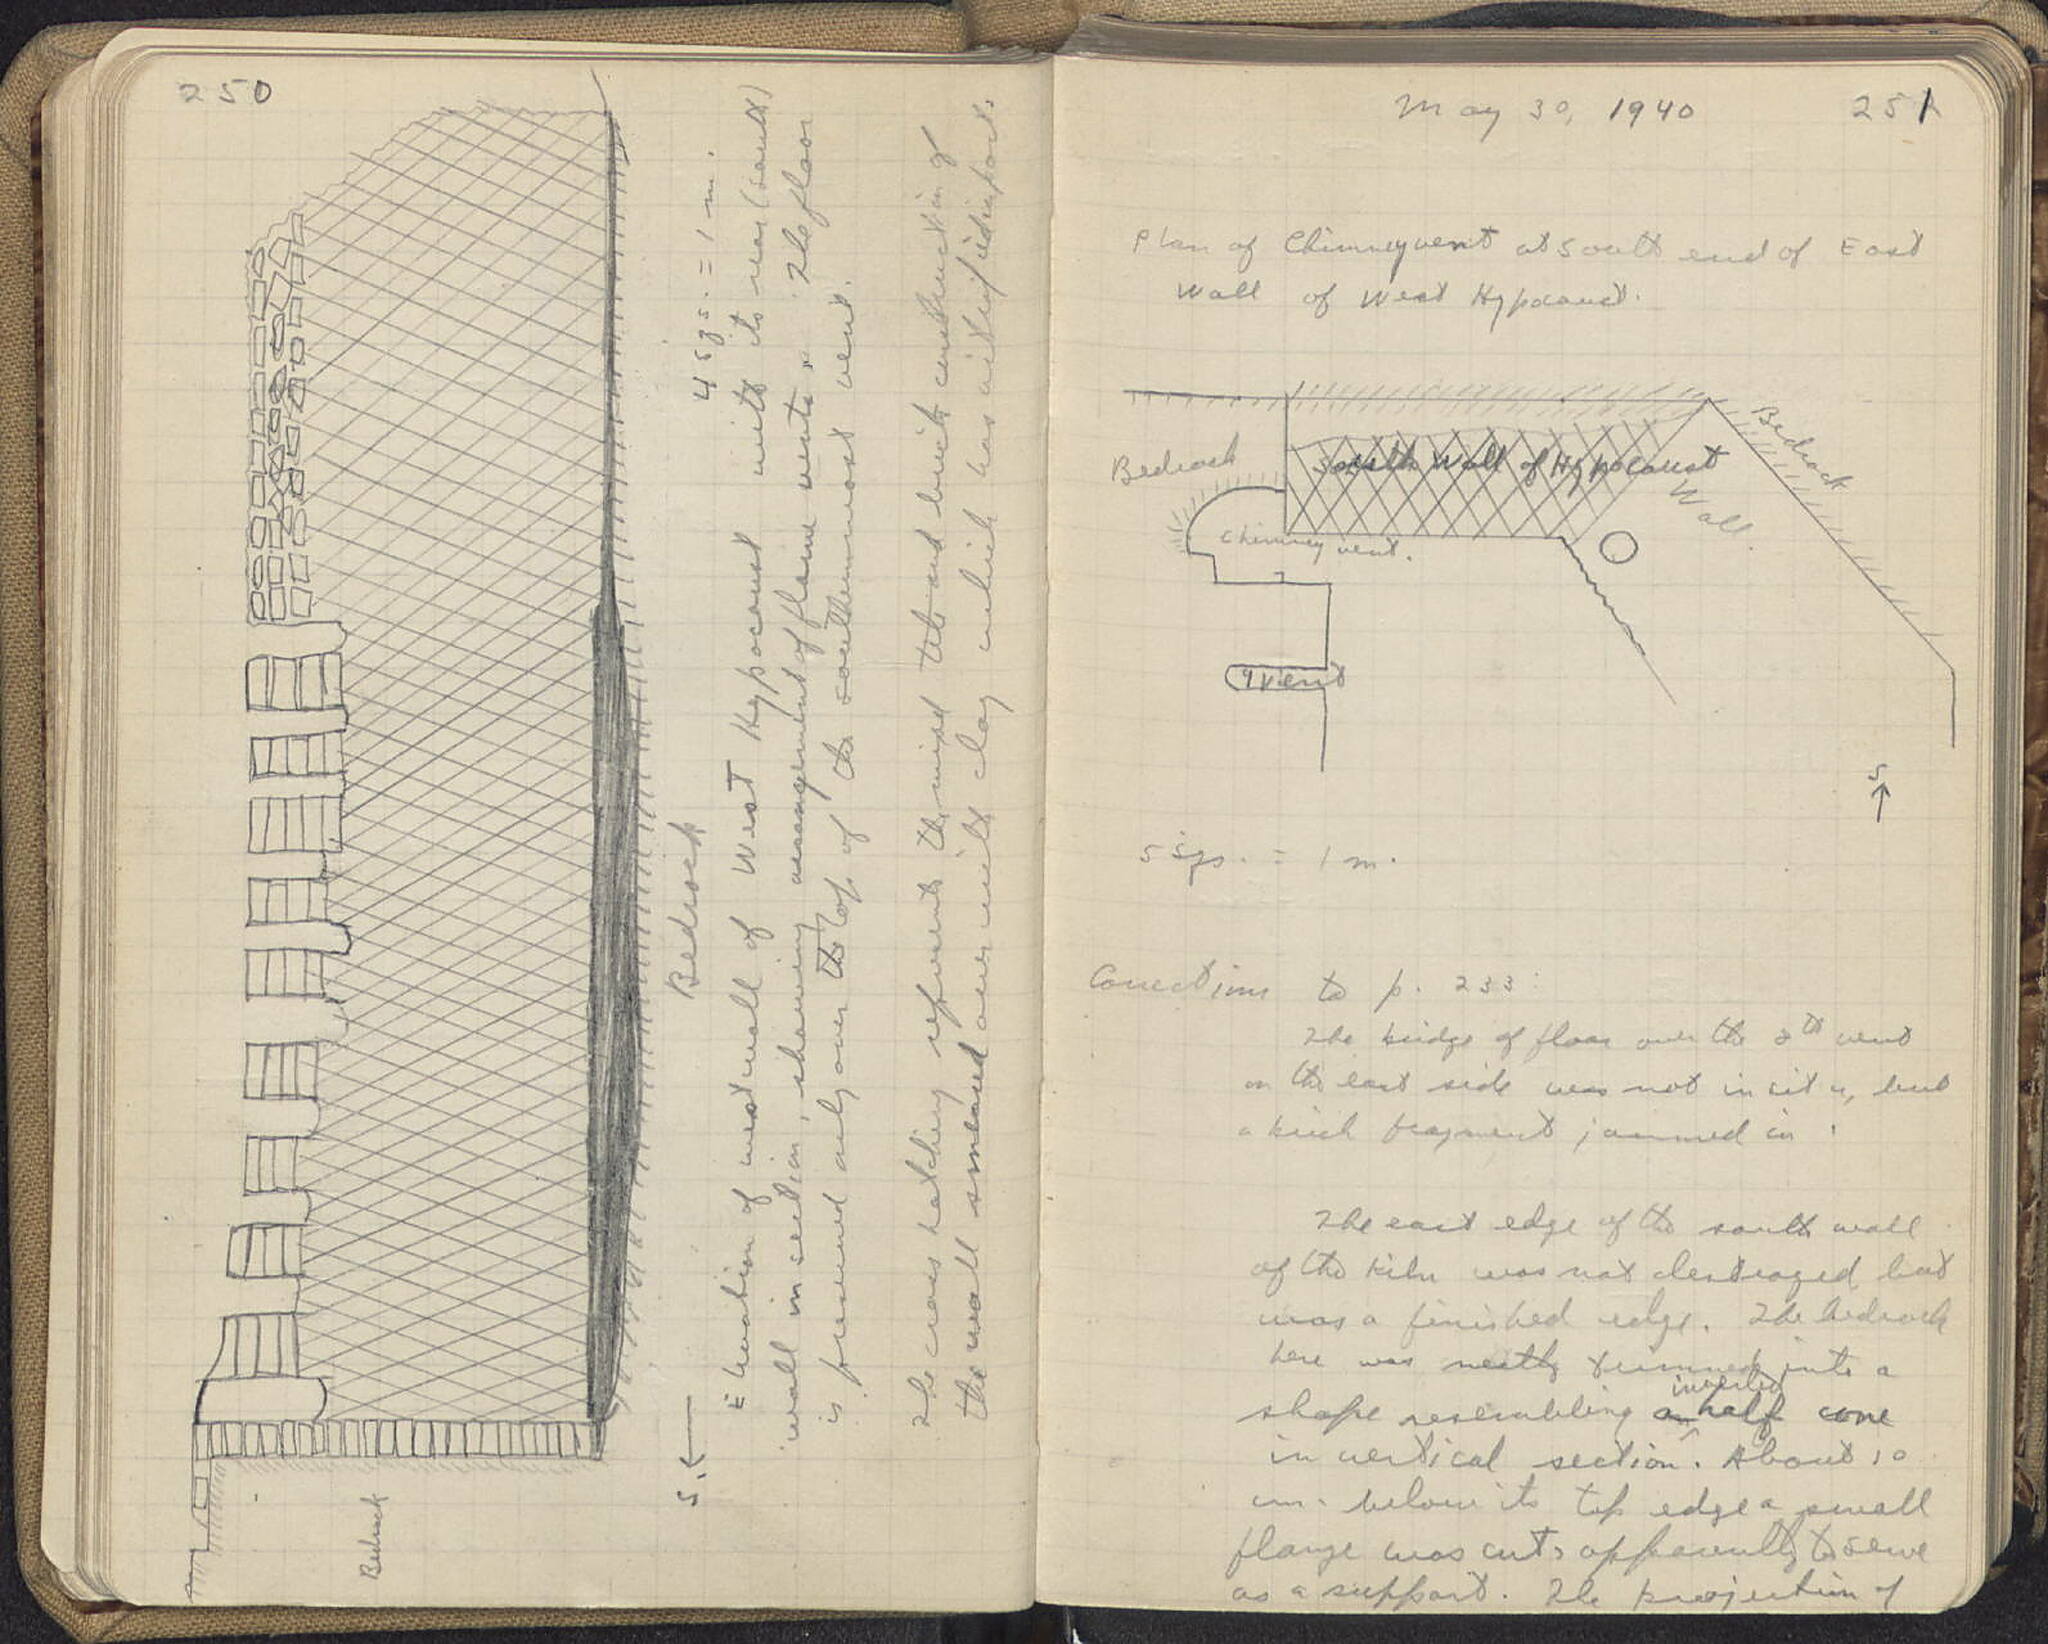 250
4 sqs. = 1 m.
Bedrock
S.
Elevation of west wall of West Hypocaust with its rear (south)
wall in section, showing arrangement of flame vents. The floor
is preserved only over the top of the southernmost vent.
The cross hatching represents the mixed tile and brick construction of
the wall smeared over with clay which has vitrified in parts.
Bedrock
May 30, 1940
251
Plan of Chimney vent at South end of East
Wall of West Hypocaust.
Bedrock
South Wall of Hypocaust
Bedrock
Wall.
Chimney vent.
Vent
S
5 sqs. = 1 m.
Corrections to p. 233:
The bridge of floor over the 8th vent
on the east side was not in situ, but
a brick fragment jammed in.
The east edge of the south wall
of the kiln was not destroyed but
was a finished edge. The bedrock
here was neatly trimmed into a
inverted
shape resembling a half cone
in vertical section. About 10
cm. below its top edge a small
flange was cut, apparently to serve
as a support. The projection of